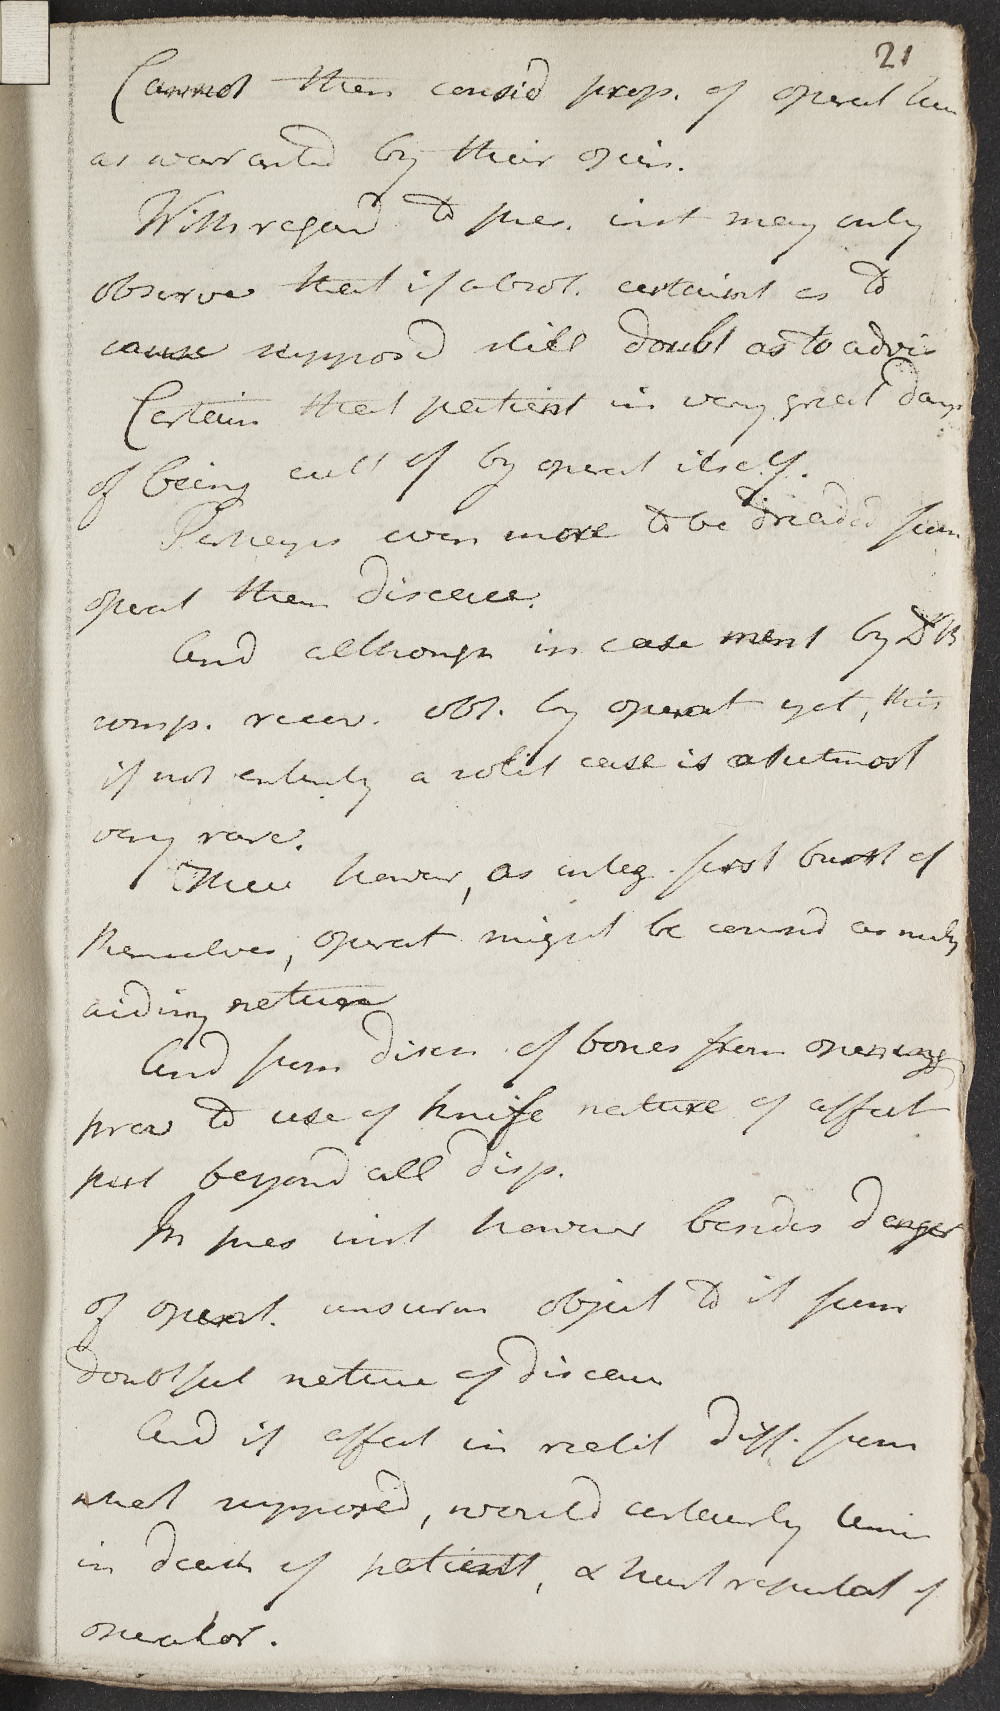 21
Cannot then consid prop. of operat her
as warranted by their opin.
With regard to pres. inst may only
observe that if absol. certaint as to
cause suppos'd still doubt as to advis
Certain that patient in very great dang
of being cutt of by operat itself.
Perhaps even more to be dreaded from
operat than disease.
And although in case ment by Dr
comp. recov. obt. by operat yet, this
if not entirely a solit case is at utmost
very rare.
There however, as integ. first burst of
themselves, operat might be consid as only
aiding nature
And from discov of bones from opening
prev to use of knife nature of affect
put beyond all disp.
In pres inst however besides danger
of operat. unsurm object to it from
doubtful nature of disease
And if affect in realit diff. from
what supposed, would certainly termin
in death of patient, & hurt reputat of
operator.